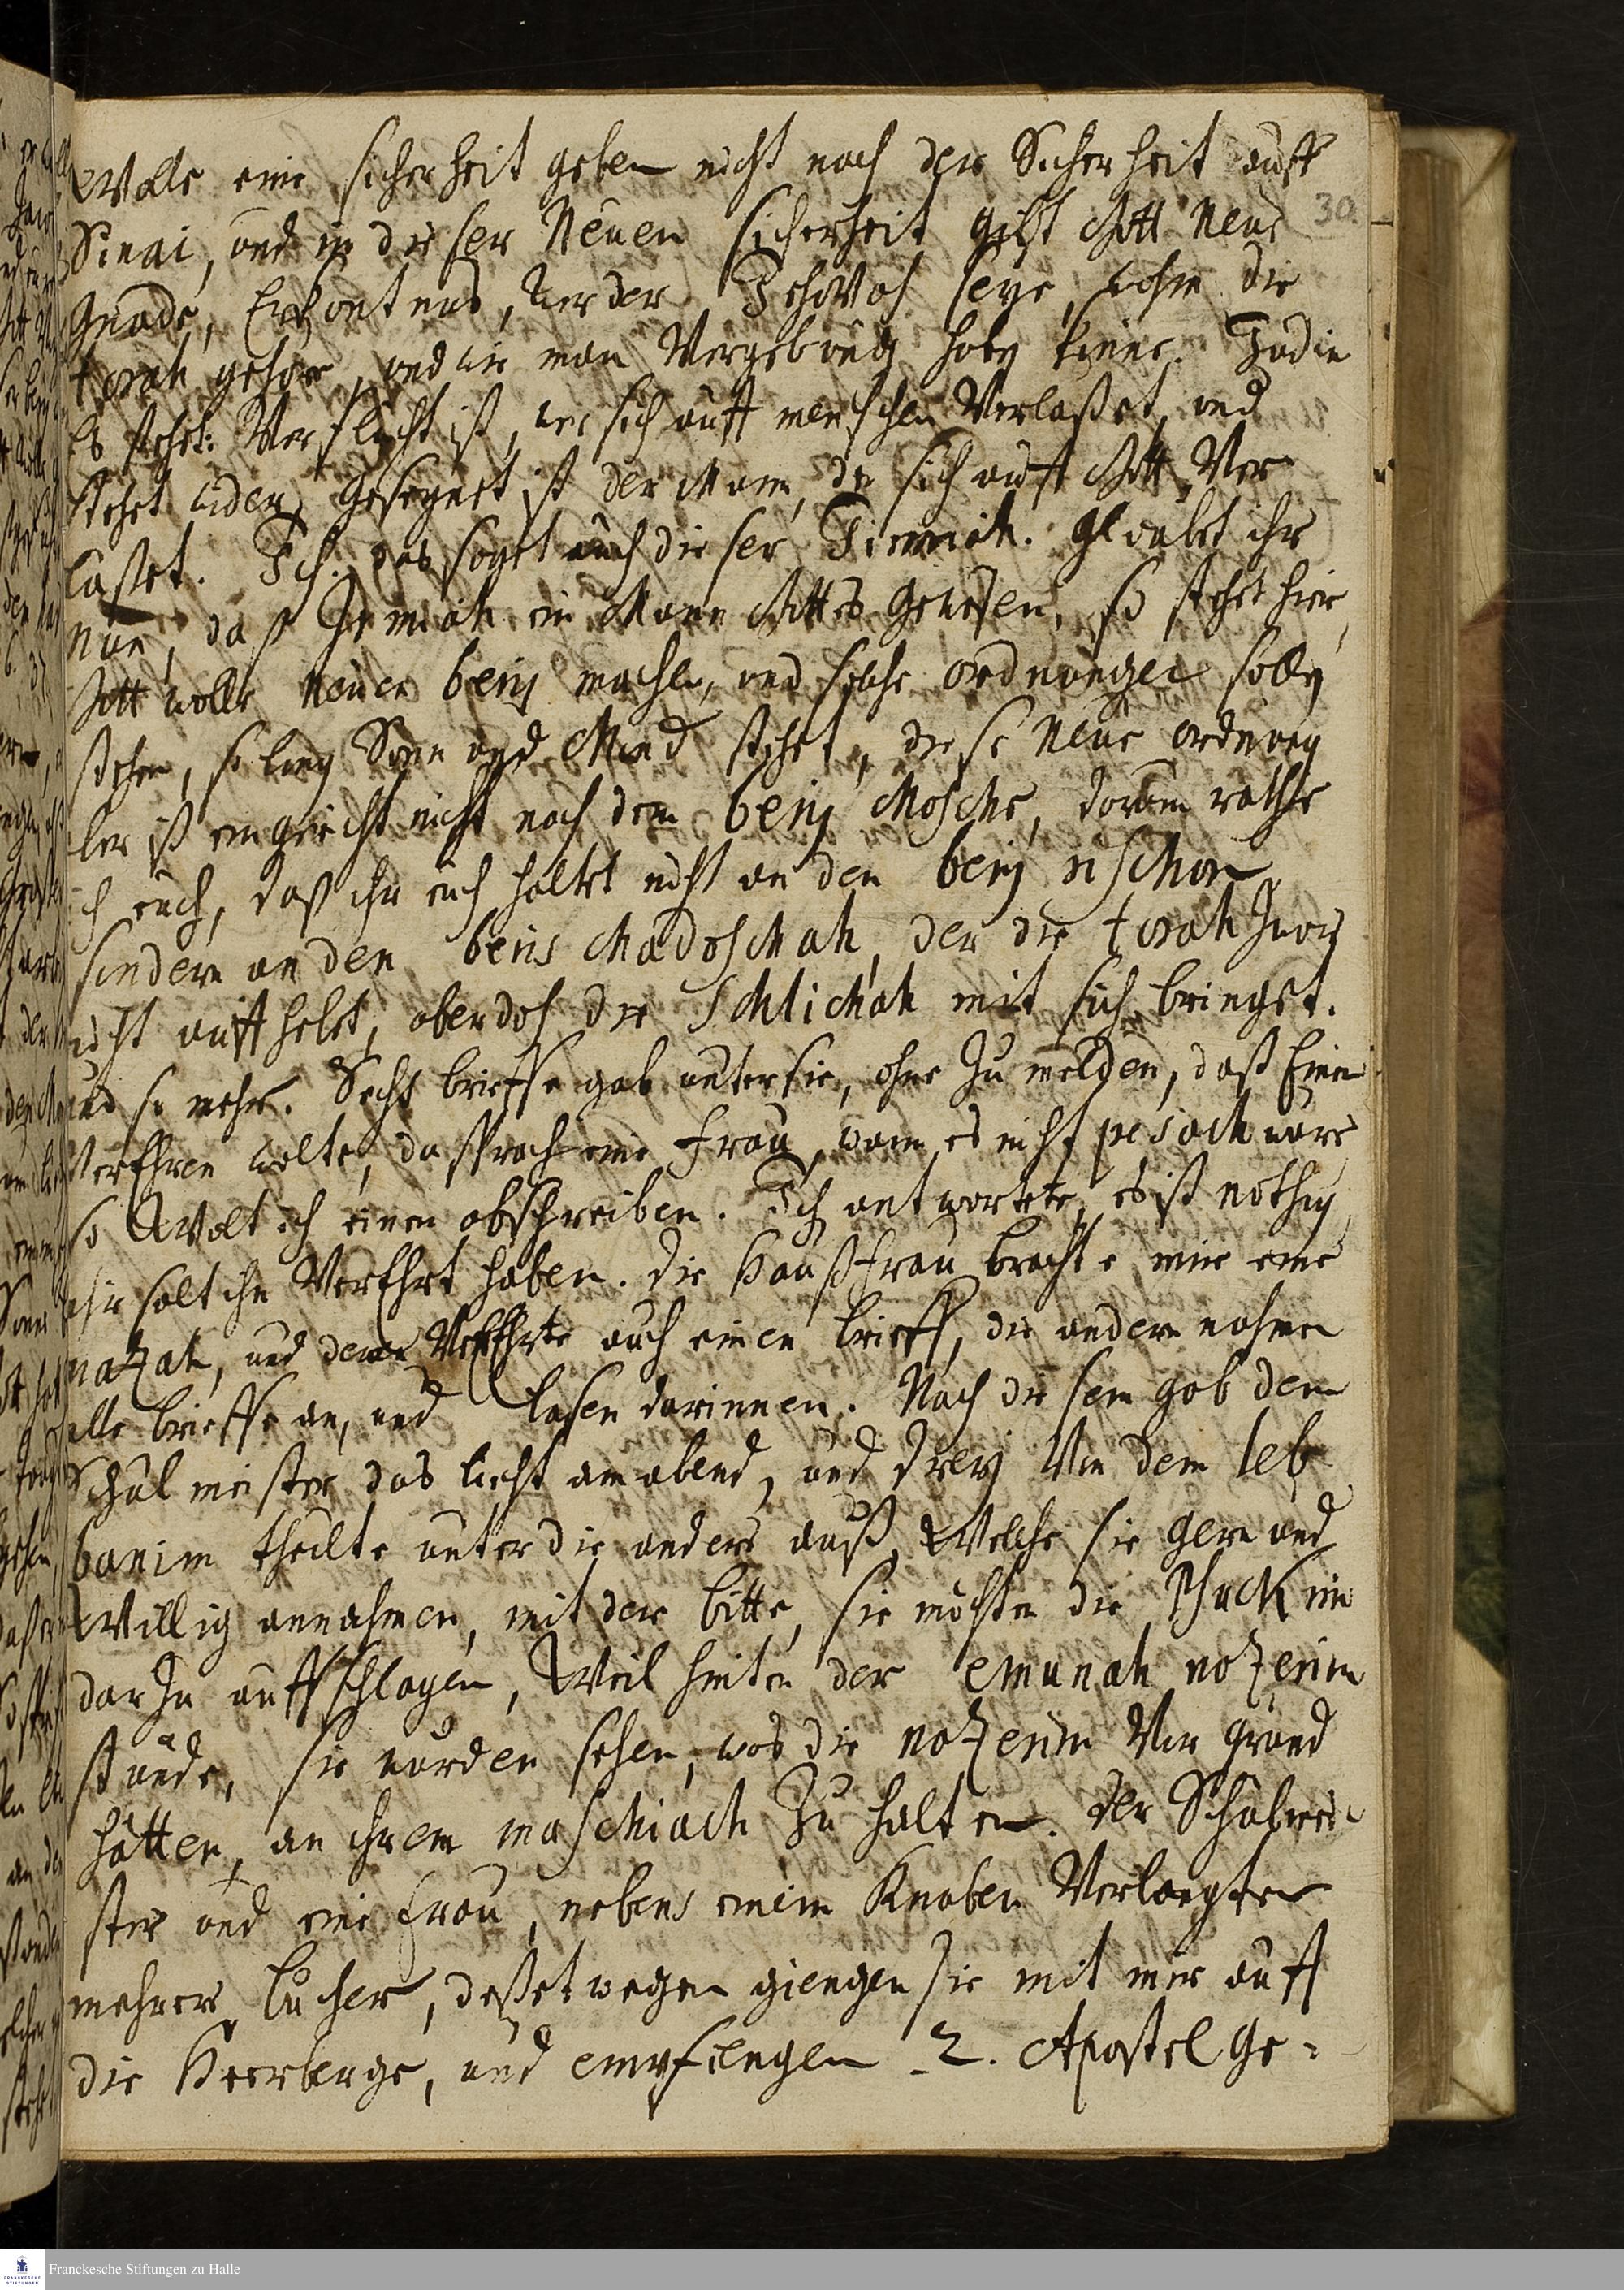 Wolle eine sicherheit geben nicht nach der Sicherheit auff
30.
Sinai, und in dieser Neuen sicherheit gibt Gott Neue
Gnade, Erkentnus, wer der Jehovah seye, wohin die
torah gehöre, und wie man Vergebung haben könne. Jüdin
Es stehet: Verflucht ist, wer sich auff menschen Verlaßet, und
stehet wider, Gesegnet ist der Mann, der sich auff Gott Ver
laßet. Ich. das saget auch dieser Jirmiah. Glaubet ihr
nun, daß Jirmiah ein Mann Gottes gewesen, so stehet hier,
Gott wolle Neuen beriṡ machen, und solche ordnungen sollen
stehen, so lang Sonn und Mond stehet, diese Neue ordnung
aber ist eingericht nicht nach dem beriṡ Mosche, darum rathe
ich euch, daß ihr euch haltet nicht an den beriṡ rischon
sondern an den beris chadoschah, der die torah zwar
nicht auffhebt, aber doch die schlichah mit sich bringet.
und so mehr. Sechs brieffe gab unter sie, ohne zu melden, daß Einen
Verehren wolte, da sprach eine Frau, wann es nicht pesach wäre
so Wolt ich einen abschreiben. Ich antwortete, es ist nöthig
ihr solt ihn Verehrt haben. Die Haußfrau brachte mir eine
mazah, und deren Verehrte auch einen brieff, die andern nahmen
alle brieffe an, und lasen darinnen. Nach diesem gab dem
Schulmeister das licht am abend, und drey Von dem leb
banim theilte unter die andere auß, Welche sie gern und
Willig annahmen, mit der bitte, sie möchten die Psuckim
darzu auffschlagen, Weil hinten der emunah nozerim
stünde, sie würden sehen, was die nozerim Vor grund
hätten, an ihrem maschiach zu halten. Der Schulmei
ster und eine frau, nebens einem Knaben Verlangten
mehrere bücher, deßetwegen giengen sie mit mir auff
die Heerberge, und empfiengen 2. Apostel Ge=
Franckesche Stiftungen zu Halle